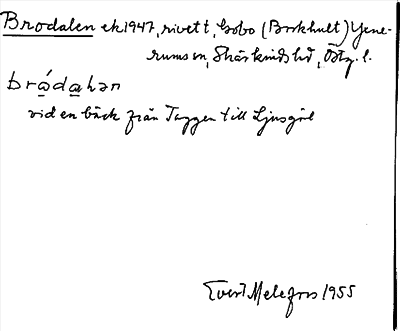 Brodalen ek 1947, rivet t, Gobo (Borkhult) Yxne-
rums sn, Skärkinds hd, Östg. l.
bródahan
vid en bäck från Taggen till Ljusgöl
Evert Melefors 1955